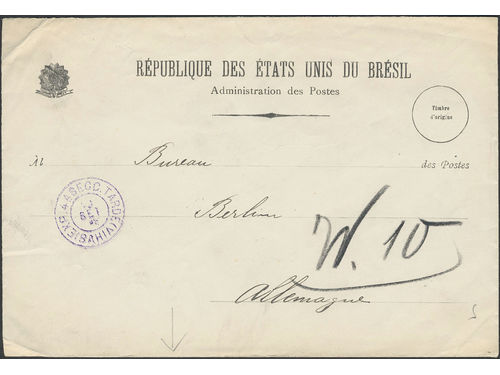 RÉPUBLIQUE DES ÉTATS UNIS DU BRÉSIL
Administration des Postes
Timbre
d'origine
À Bureau des Postes
Berlin
W. 10
Allemagne
4A SECC. TARDE (V)
SET
(BAHIA)